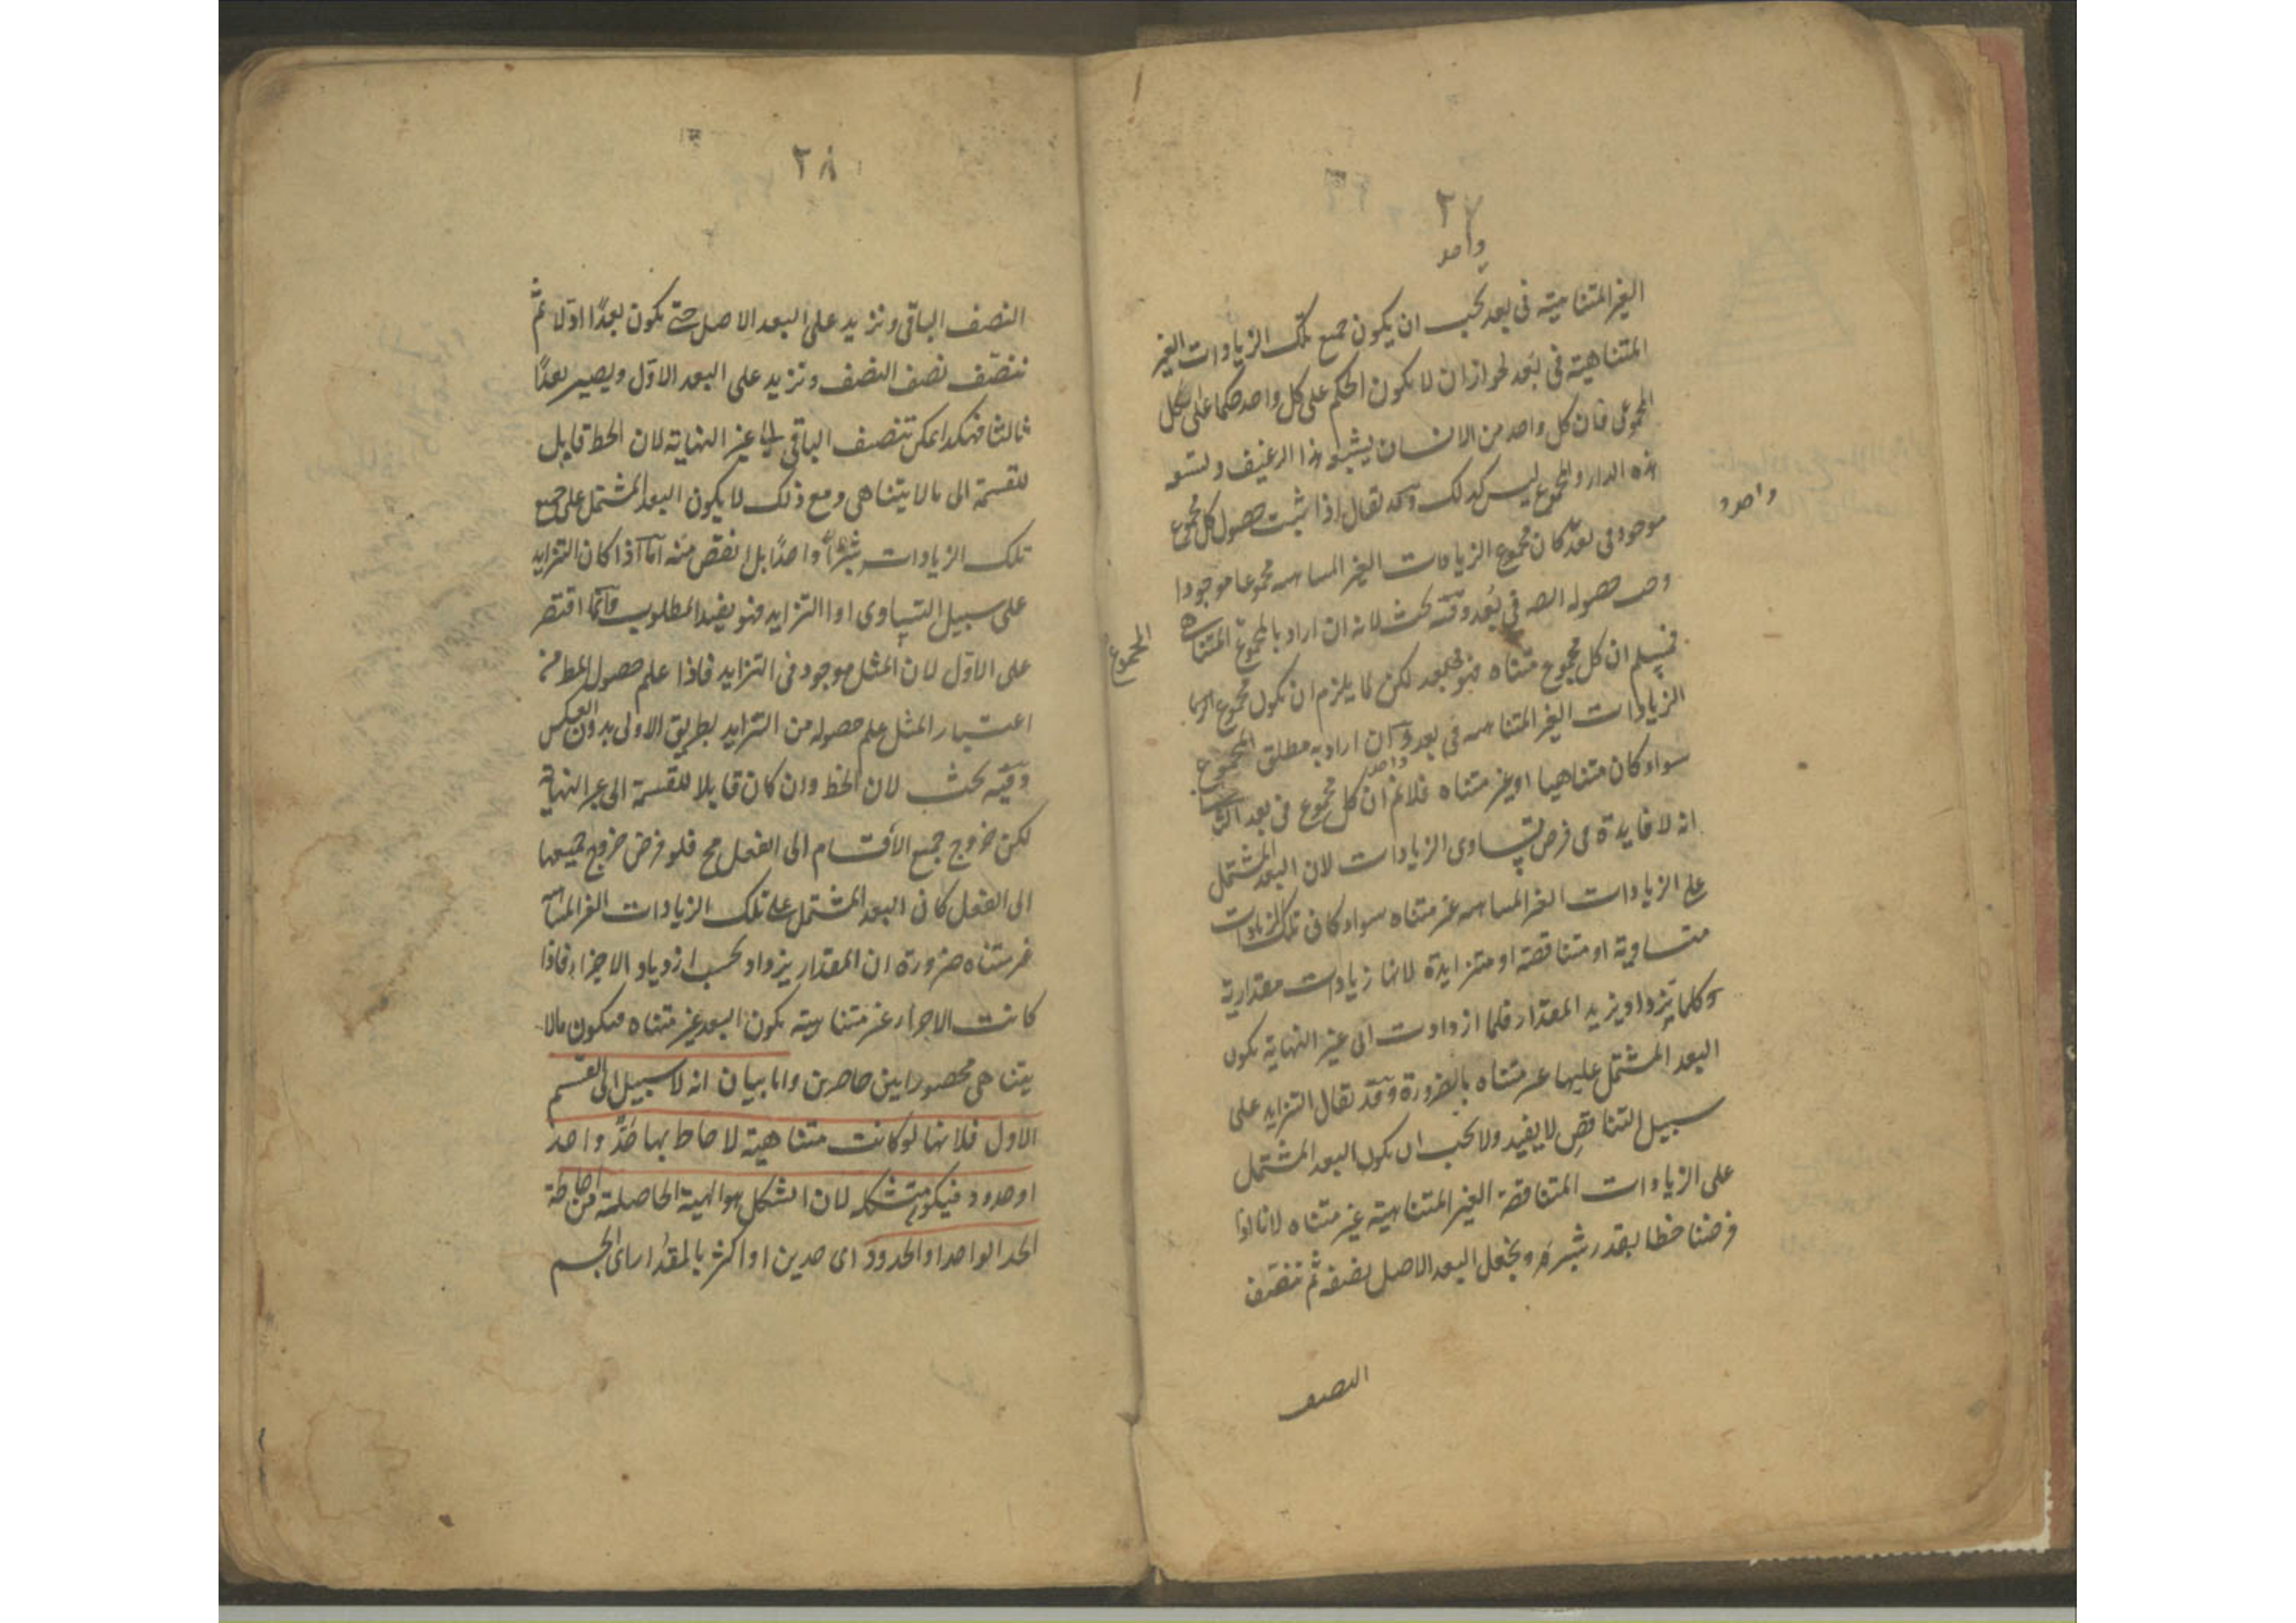 ٢٧
واحد
الغير المتناهية فى بعد يجب ان يكون جميع تلك الزيادات الغير
المتناهية فى بُعد لجواز ان لا يكون الحكم على كل واحد حكما على الكل
المجموعى فان كل واحد من الانسان يشبعه هذا الرغيف وتسعه
هذه الدار والمجموع ليس كذلك وقد يقال اذا ثبت حصول كل مجموع
واحد
موجود فى بعد كان مجموع الزيادات الغير المتناهيه مجموعا موجودا
حصوله فى بُعد وفيه بحث لانه ان اراد بالمجموع المتناه
المجموع
فمسلم ان كل مجموع متناه فهو فى بعد لكن لا يلزم ان يكون مجموع
الزيادات الغير المتناهيه فى بعد وان اراد به مطلق المجموع
واحد
سواء كان متناهيا او غير متناه فلانم ان كل مجموع فى بعد
انه لا فايدة فى فرض تساوى الزيادات لان البعد المشتمل
على الزيادات الغير المتناهيه غير متناه سواء كان تلك الزيادات
متساوية او متناقصة او متزايدة لانها زيادات مقدارية
وكلما تزداد يزيد المقدار فلما ازدادت الى غير النهاية يكون
البعد المشتمل عليها غير متناه بالضرورة وقد يقال التزايد على
سبيل التناقص لا يفيد ولا يجب ان يكون البعد المشتمل
على الزيادات المتناقصة الغير المتناهية غير متناه لانا اذا
فرضنا خطا بقدر شبر ونجعل البعد الاصل نصفه ثم ننصف
النصف
٢٨
النصف الباقى ونزيد على البعد الاصل حتى يكون بعدًا اوّلا ثم
ننصّف نصف النصف ونزيد على البعد الاوّل ويصير بعدًا
ثالثا فهكذا يمكن تنصيف الباقى الى غير النهاية لان الخط قابل
للقسمة الى ما لا يتناهى ومع ذلك لا يكون البعد المشتمل على جميع
تلك الزيادات شبرًا واحدًا بل انقص منه اما اذا كان التزايد
على سبيل التساوى او التزايد فهو يفيد المطلوب وانما اقتصر
على الاوّل لان المثل موجود فى التزايد فاذا علم حصول المط من
اعتبار المثل علم حصوله من التزايد بطريق الاولى بدون العكس
وفيه بحث لان الخط وان كان قابلا للقسمة الى غير النهاية
لكن خروج جميع الأقسام الى الفعل مح فلو فرض خروج جميعها
الى الفعل كان البعد المشتمل على تلك الزيادات الغير المتناهية
غير متناه ضرورة ان المقدار يزداد بحسب ازدياد الاجزاء فاذا
كانت الاجزاء غير متناهية يكون البعد غير متناه فيكون مالا
يتناهى محصورا بين حاصرين واما بيان انه لا سبيل الى القسم
الاول فلانها لو كانت متناهية لاحاط بها حدّ واحد
او حدود فيكون متشكلة لان الشكل هو الهيئة الحاصلة من احاطة
الحد الواحد او الحدود اى حدين او اكثر بالمقدار اى الجسم